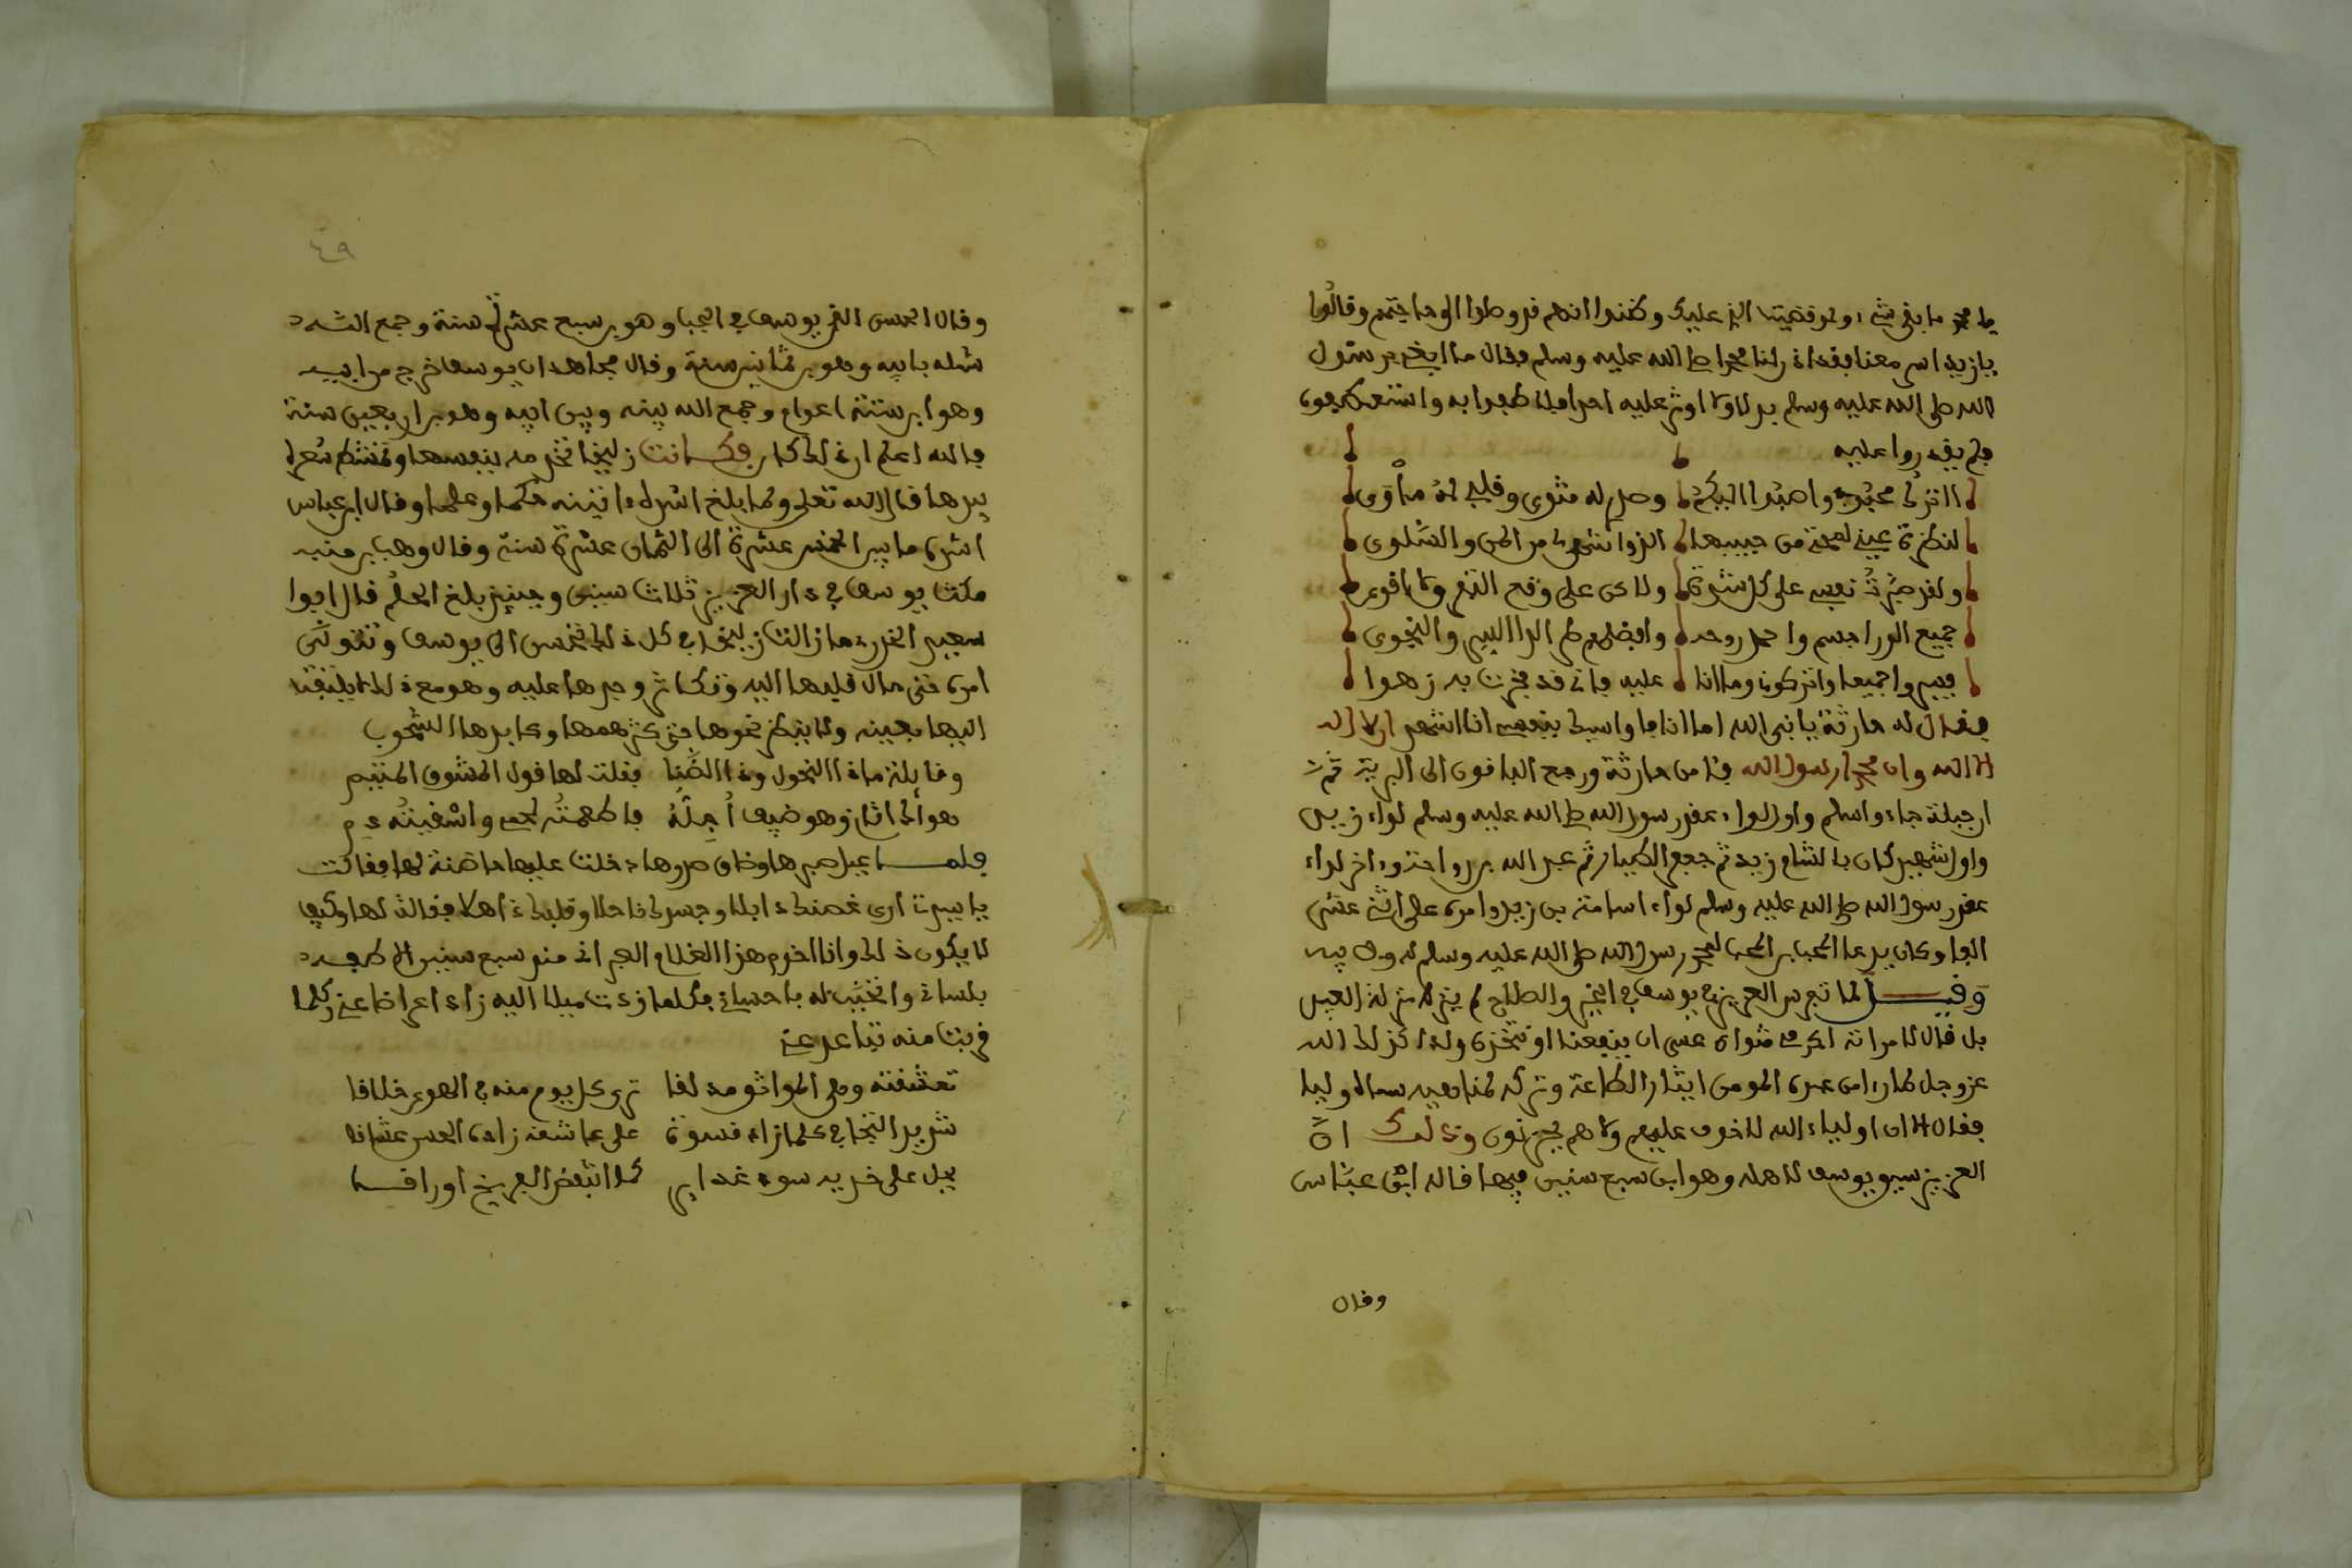 يا محمد ما بقي شيء ولو قضيت الذي عليك وظنوا انهم قد وصلوا الى حاجتهم وقالوا
يا زيد اسر معنا بقد اذن لنا محمد صلى الله عليه وسلم فقال ما ابغي برسول
الله صلى الله عليه وسلم بدلا ولا اوثر عليه احدا فلما ظفروا به واستعطفوه
فلم يقدروا عليه
وصار له مثوى وقلبي له مأوى
لنظرة عيني لمحة من حبيبها الذوا شهى من المن والسلوى
ولقد صبرت نفسي على كل شدة ولاكن على وقع النوى لا اقوى
جميع الورا جسم واحمد روحه وافضلهم طرا لدا السر والنجوى
فسيروا جميعا واتركوني وما انا عليه فاني قد فخرت به زهوا
فقال له حارثة يا نبي الله اما انا فاواسيك بنفسي انا اشهد ان لا اله
الا الله وان محمدا رسول الله فئامن حارثة ورجع الباقون الى البرية ثم ان
ابن جبلة جاء واسلم واول لواء عقد رسول الله صلى الله عليه وسلم لواء زيد
واول شهيد كان بالشام زيد ثم جعفر الطيار ثم عبد الله بن رواحة واخر لواء
عقد رسول الله صلى الله عليه وسلم لواء اسامة بن زيد وامره على اثنى عشر
الفا وكان يدعا الحب ابن الحب لمحبة رسول الله صلى الله عليه وسلم له ولابيه
وقيل لما تفرس العزيز في يوسف الخير والصلاح لم ينزله منزلة العبيد
بل قال لامراته اكرمي مثواه عسى ان ينفعنا او نتخذه ولدا كذلك الله
عز وجل لما راى من عبده المومن ايثار الطاعة وتركه لمنا هيه سماه وليا
فقال الا ان اولياء الله لا خوف عليهم ولا هم يحزنون وذالك ان
العزيز سبى يوسف لاهله وهو ابن سبع سنين فيها قاله ابن عباس
وقال
٤٩
وقال الحسن القي يوسف في الجب وهو بن سبع عشرة سنة وجمع الله
شمله بابيه وهو بن ثمانين سنة وقال مجاهد ان يوسف خرج من ابيه
وهو ابن ستة اعوام وجمع الله بينه وبين ابيه وهو بن اربعين سنة
فالله اعلم اي ذلك كان وكانت زليخا تخدمه بنفسها وتمشط شعره
بيدها قال الله تعلى ولما بلغ اشده ءاتيناه حكما وعلما وقال ابن عباس
اشده ما بين الخمس عشرة الى الثمان عشرة سنة وقال وهب بن منبه
مكث يوسف في دار العزيز ثلاث سنين وحينئذ بلغ الحلم قال ابوا
سعيد الخدري ما زالت زليخا في كل ذلك تحسن الى يوسف وتتولى
امره حتى مال قلبها اليه وتكاثر وجدها عليه وهو مع ذلك لا يلتفت
اليها بعينه ولا ينظر نحوها حتى كثر همها وكابدها الشحوب
وقايلة ما ذا النحول وذا الضنا فقلت لها قول المشوق المتيم
هواك اتان وهو ضيف أجله فاطعمته لحمي واسقيته دمي
فلما عيل صبرها وضاق صدرها دخلت عليها حاضنة لها فقالت
يا سيدتي ارى غصنك ذابلا وجسدك ناحلا وقلبك ذاهلا فقالت لها وكيف
لا يكون ذلك وانا اخدم هذا الغلام العبراني منذ سبع سنين الاطفه
بلساني واتحبب له باحساني فكلما زدت ميلا اليه زاد اعراضا عني وكلما
قربت منه تباعد عني
تعشقته وطي المواثق مذ لقا ترى كل يوم منه في الهوى خلاقا
شديد التجافي كلما زاد قسوة على عاشقه زاده الحسن عشاقا